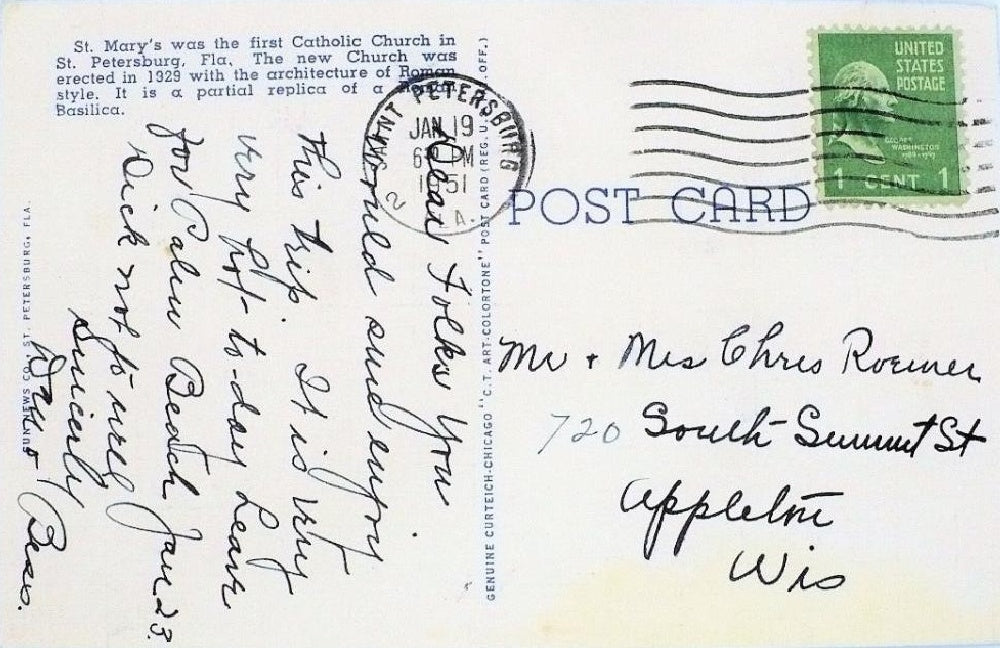 St. Mary's was the first Catholic Church in
St. Petersburg, Fla. The new Church was
erected in 1929 with the architecture of Roman
style. It is a partial replica of a Roman
Basilica.
Dear Folks You
would sure enjoy
this trip. It is very
very hot to-day Leave
for Palm Beach Jan 23.
Dick not to well
Sincerely
SUN NEWS CO., ST. PETERSBURG, FLA.
GENUINE CURTEICH-CHICAGO "C.T. ART-COLORTONE" POST CARD (REG. U.S. OFF.)
SAINT PETERSBURG
JAN 19
PM
1951
2
POST CARD
UNITED
STATES
POSTAGE
GEORGE
WASHINGTON
1789-1797
1 CENT 1
Mr + Mrs Chris Roemer
720 South Summit St
Appleton
Wis